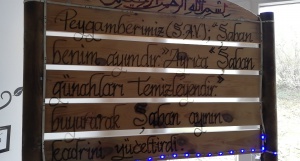 بسم الله الرحمن الرحيم
Peygamberimiz (S.A.V); "Şaban
benim ayımdır." Ayrıca "Şaban
günahları temizleyendir."
buyurarak Şaban ayının
kadrini yükseltirdi.